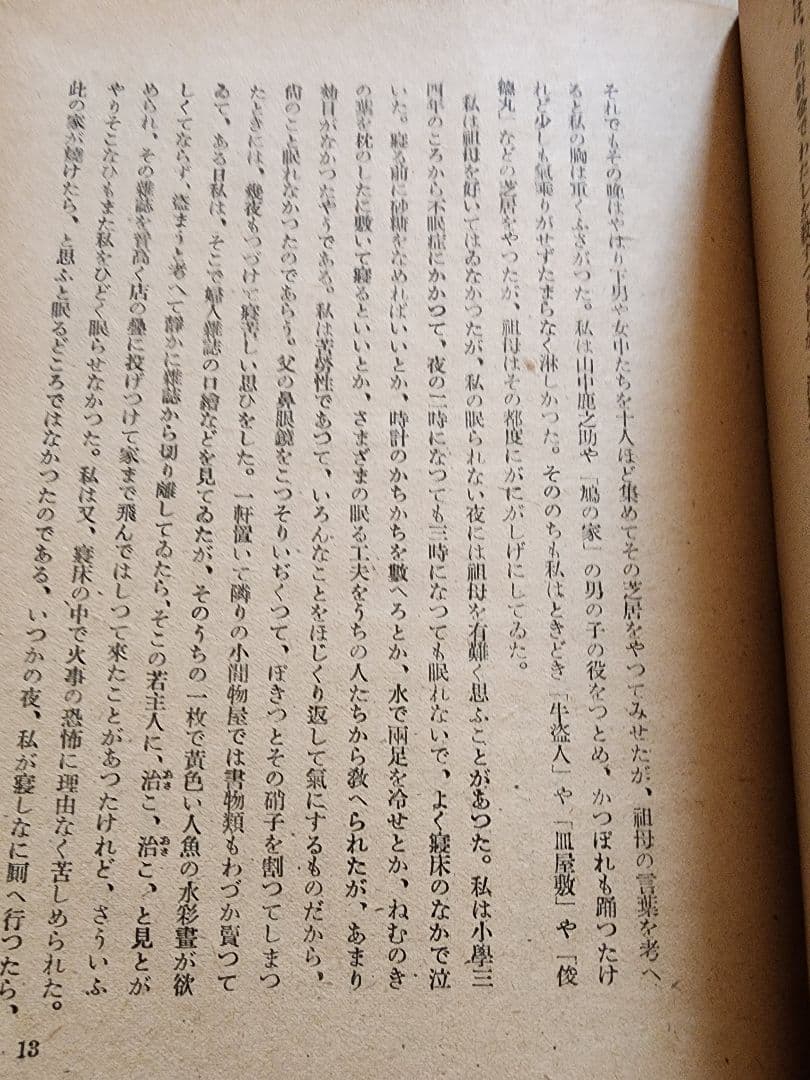 それでもその晩はやはり下男や女中たちを十人ほど集めてその芝居をやつてみせたが、祖母の言葉を考へ
ると私の胸は重くふさがつた。私は山中鹿之助や「鳩の家」の男の子の役をつとめ、かつぽれも踊つたけ
れど少しも氣乘りがせずたまらなく淋しかつた。そののちも私はときどき「牛盜人」や「皿屋敷」や「俊
德丸」などの芝居をやつたが、祖母はその都度にがにがしげにしてゐた。
私は祖母を好いてはゐなかつたが、私の眠られない夜には祖母を有難く思ふことがあつた。私は小學三
四年のころから不眠症にかかつて、夜の二時になつても三時になつても眠れないで、よく寢床のなかで泣
いた。寢る前に砂糖をなめればいいとか、時計のかちかちを數へろとか、水で兩足を冷せとか、ねむのき
の葉を枕のしたに敷いて寢るといいとか、さまざまの眠る工夫をうちの人たちから敎へられたが、あまり
効目がなかつたやうである。私は苦勞性であつて、いろんなことをほじくり返して氣にするものだから、
尙のこと眠れなかつたのであらう。父の鼻眼鏡をこつそりいぢくつて、ぽきつとその硝子を割つてしまつ
たときには、幾夜もつづけて寢苦しい思ひをした。一軒置いて隣りの小間物屋では書物類もわづか賣つて
ゐて、ある日私は、そこで婦人雜誌の口繪などを見てゐたが、そのうちの一枚で黃色い人魚の水彩畫が欲
しくてならず、盜まうと考へて靜かに雜誌から切り離してゐたら、そこの若主人に、治こ、治こ、と見とが
められ、その雜誌を音高く店の疊に投げつけて家まで飛んではしつて來たことがあつたけれど、さういふ
やりそこなひもまた私をひどく眠らせなかつた。私は又、寢床の中で火事の恐怖に理由なく苦しめられた。
此の家が燒けたら、と思ふと眠るどころではなかつたのである、いつかの夜、私が寢しなに厠へ行つたら、
13